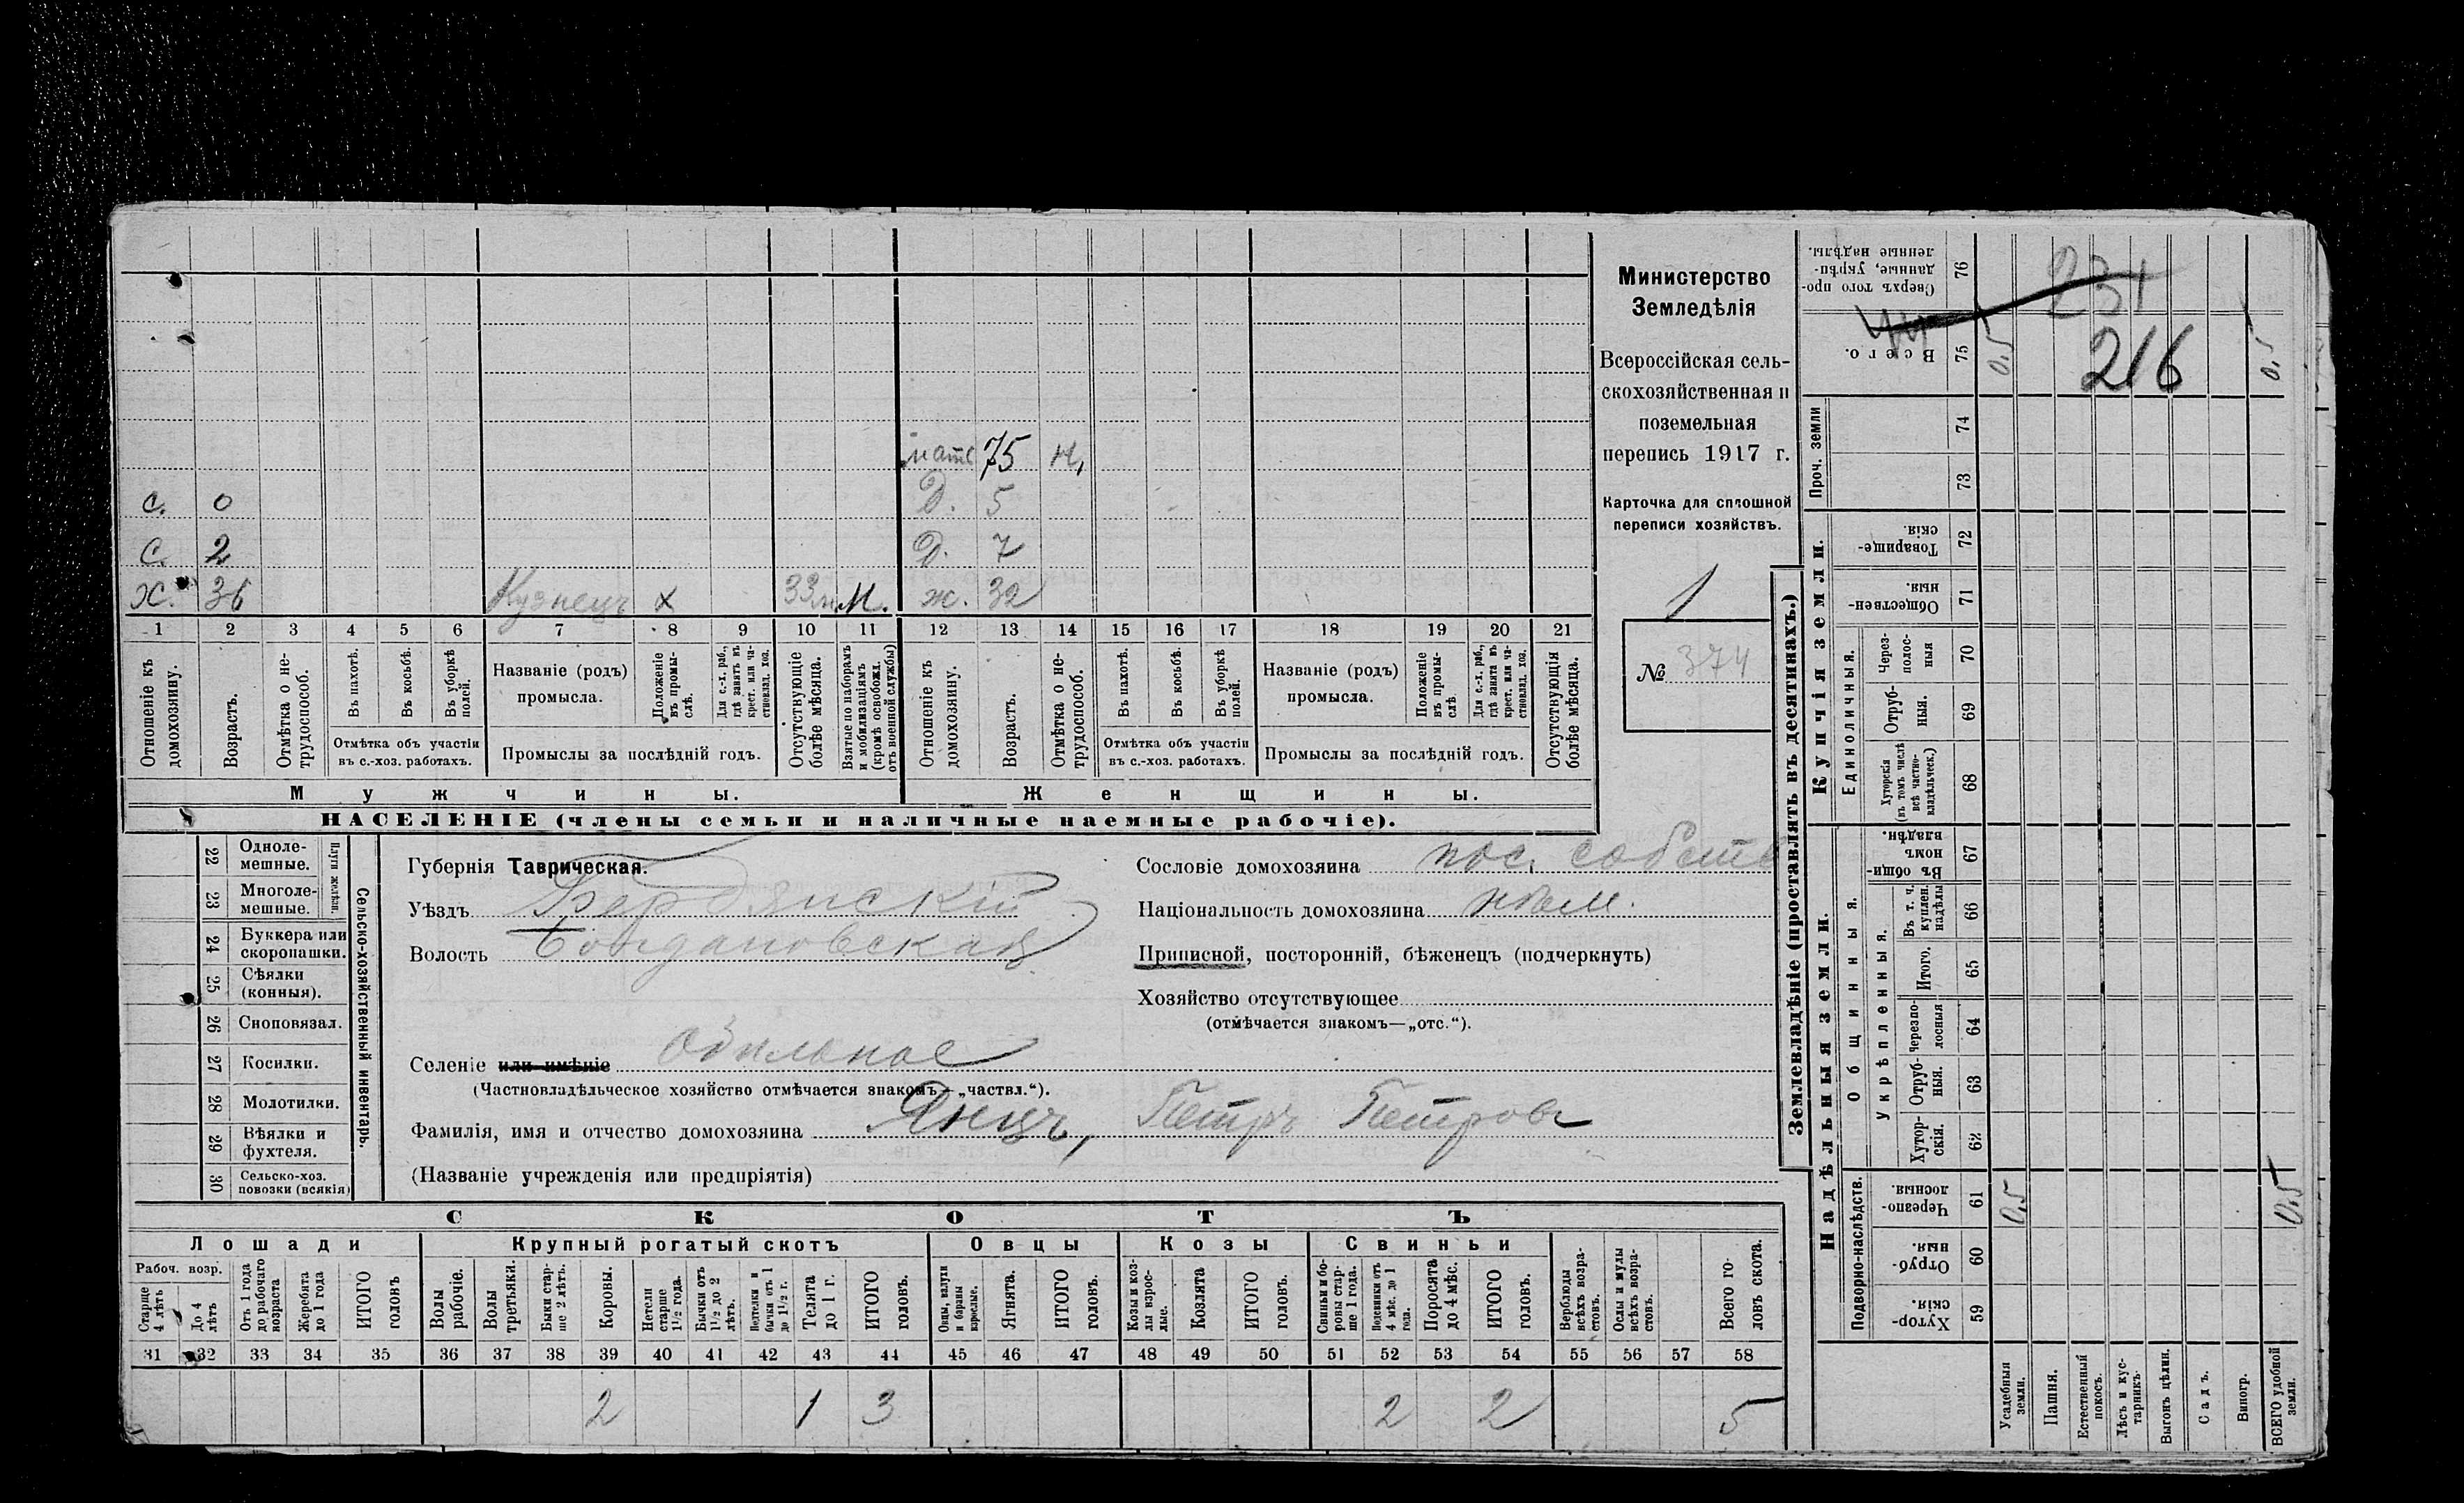 Министерство
Земледѣлія
Всероссійская сель-
скохозяйственная и
поземельная
перепись 1917 г.
Карточка для сплошной
переписи хозяйствъ.
1
№ 374
мать 75 н,
С. 0 Д. 5
С. 2 Д. 7
Х. 36 Кузнецъ х 33 м. М. ж. 32
1 2 3 4 5 6 7 8 9 10 11 12 13 14 15 16 17 18 19 20 21
Отношеніе къ домохозяину.
Возрастъ.
Отмѣтка о не-трудоспособ.
Въ пахотѣ.
Въ косьбѣ.
Въ уборкѣ полей.
Отмѣтка объ участіи въ с.-хоз. работахъ.
Названіе (родъ) промысла.
Положеніе въ промы-слѣ
Для с.-х. раб., гдѣ занятъ въ крест. или ча-стновлад. хоз.
Промыслы за послѣдній годъ.
Отсутствующіе болѣе мѣсяца.
Взятые по наборамъ и мобилизаціямъ (кромѣ освобожд. отъ военной службы)
Отношеніе къ домохозяину.
Возрастъ.
Отмѣтка о не-трудоспособ.
Въ пахотѣ.
Въ косьбѣ.
Въ уборкѣ полей.
Отмѣтка объ участіи въ с.-хоз. работахъ.
Названіе (родъ) промысла.
Положеніе въ промы-слѣ
Для с.-х. раб., гдѣ занята въ крест. или ча-стновлад. хоз.
Промыслы за послѣдній годъ.
Отсутствующія болѣе мѣсяца.
Мужчины. Женщины.
НАСЕЛЕНІЕ (члены семьи и наличные наемные рабочіе).
22 Одноле-мешные.
23 Многоле-мешные.
Плуги желѣзн.
24 Буккера или скоропашки.
25 Сѣялки (конныя).
26 Сноповязал.
27 Косилки.
28 Молотилки.
29 Вѣялки и фухтеля.
30 Сельско-хоз. повозки (всякія)
Сельско-хозяйственный инвентарь.
Губернія Таврическая.
Уѣздъ Бердянскій
Волость Богдановская
Селеніе или имѣніе Обильное
(Частновладѣльческое хозяйство отмѣчается знакомъ—„частвл.“).
Фамилія, имя и отчество домохозяина Янцъ, Петръ Петровъ
(Названіе учрежденія или предпріятія)
Сословіе домохозяина пос. собств
Національность домохозяина нѣм.
Приписной, посторонній, бѣженецъ (подчеркнуть)
Хозяйство отсутствующее
(отмѣчается знакомъ—„отс.“).
СКОТЪ
Лошади Крупный рогатый скотъ Овцы Козы Свиньи
Рабоч. возр.
Старше 4 лѣтъ
До 4 лѣтъ
Отъ 1 года до рабочаго возраста
Жеребята до 1 года
ИТОГО головъ
Волы рабочіе.
Волы третьяки.
Быки стар-ше 2 лѣтъ.
Коровы.
Нетели старше 1½ года.
Бычки отъ 1½ до 2 лѣтъ.
Нетелки и бычки отъ 1 до 1½ г.
Телята до 1 г.
ИТОГО головъ.
Овцы, валухи и бараны взрослые.
Ягнята.
ИТОГО головъ.
Козы и коз-лы взрос-лые.
Козлята
ИТОГО головъ.
Свиньи и бо-ровы стар-ше 1 года.
Подсвинки отъ 4 мѣс. до 1 года.
Поросята до 4 мѣс.
ИТОГО головъ.
Верблюды всѣхъ возра-стовъ.
Ослы и мулы всѣхъ возра-стовъ.
Всего го-ловъ скота.
31 32 33 34 35 36 37 38 39 40 41 42 43 44 45 46 47 48 49 50 51 52 53 54 55 56 57 58
2 1 3 2 2 5
Землевладѣніе (проставлять въ десятинахъ.)
Сверхъ того про-данные, укрѣп-ленные надѣлы. 76
231
Всего. 75 0,5 216 0,5
Проч. земли 74
73
Купчія земли.
Товарище-скія 72
Обществен-ныя. 71
Единоличныя.
Через-полос-ныя 70
Отруб-ныя. 69
Хуторскія (въ томъ числѣ всѣ частно-владѣльческ.) 68
Надѣльныя земли.
Общинныя.
Въ общин-номъ владѣн. 67
Укрѣпленныя.
Въ т. ч. куплен. надѣлы 66
Итого. 65
Черезпо-лосныя 64
Отруб-ныя. 63
Хутор-скія. 62
Подворно-наслѣдств.
Черезпо-лосныя. 61 0,5 0,5
Отруб-ныя. 60
Хутор-скія. 59
Усадебныя земли.
Пашня.
Естественный покосъ.
Лѣсъ и кус-тарникъ.
Выгонъ цѣлин.
Садъ.
Виногр.
ВСЕГО удобной земли.